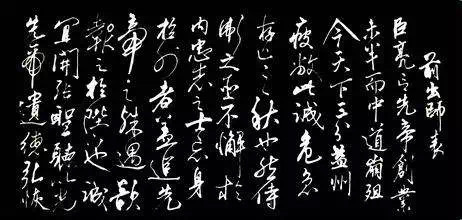 前出師表
臣亮言先帝創業
未半而中道崩殂
今天下三分益州
疲敝此誠危急
存亡之秋也然侍
衛之臣不懈於
內忠志之士忘身
於外者蓋追先
帝之殊遇欲
報之於陛下也誠
宜開張聖聽以光
先帝遺德弘恢